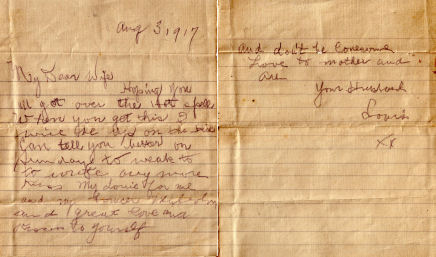 Aug 3, 1917
My Dear Wife
Hoping you
all got over the Hot spell
when you get this I
on the
can tell you better on
Sunday to weak to
to write any more
My love for me
and my
and great love and
to yourself
and dont be lonesome
Love to mother and
all
Your Husband
Louis
xx